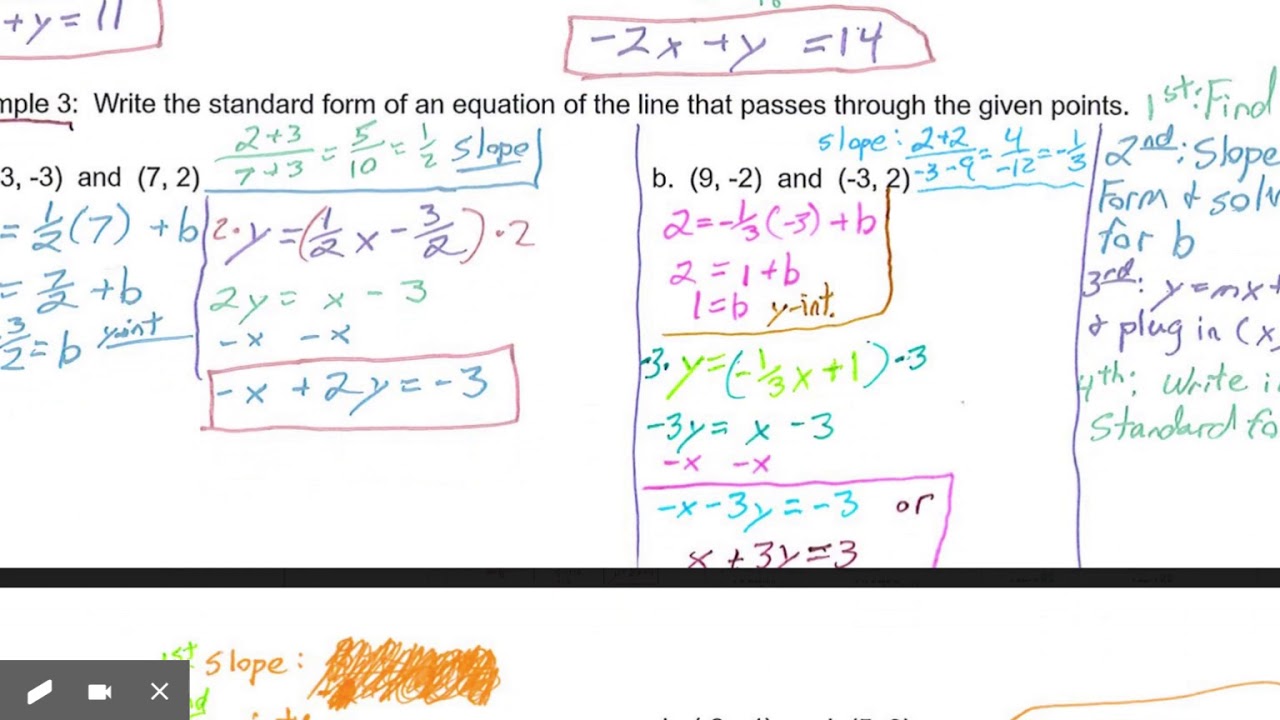 + y = 11
-2x + y = 14
mple 3: Write the standard form of an equation of the line that passes through the given points.
3, -3) and (7, 2)
2+3/7+3 = 5/10 = 1/2 slope
= 1/2(7) + b
= 7/2 + b
3/2 = b y-int
2· y = (1/2 x - 3/2) · 2
2y = x - 3
-x -x
-x + 2y = -3
b. (9, -2) and (-3, 2)
slope: 2+2/-3-9 = 4/-12 = -1/3
2 = -1/3(-3) + b
2 = 1 + b
1 = b y-int.
-3· y = (-1/3 x + 1) · -3
-3y = x - 3
-x -x
-x - 3y = -3 or
x + 3y = 3
1st: Find
2nd: Slope
Form & solv
for b
3rd: y = mx +
& plug in (x,
4th: Write i
Standard fo
1st slope:
nd